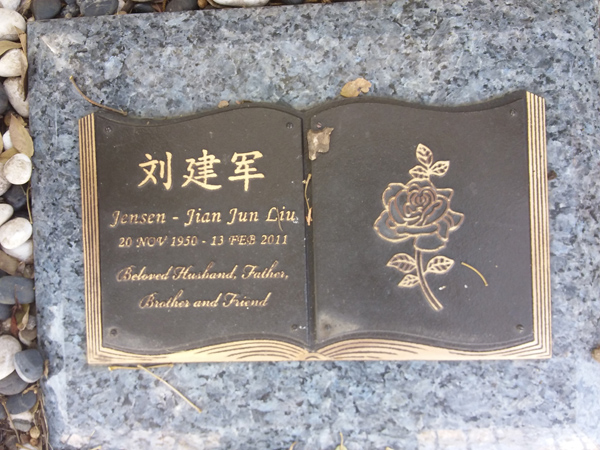 刘建军
Jensen - Jian Jun Liu
20 NOV 1950 - 13 FEB 2011
Beloved Husband, Father,
Brother and Friend